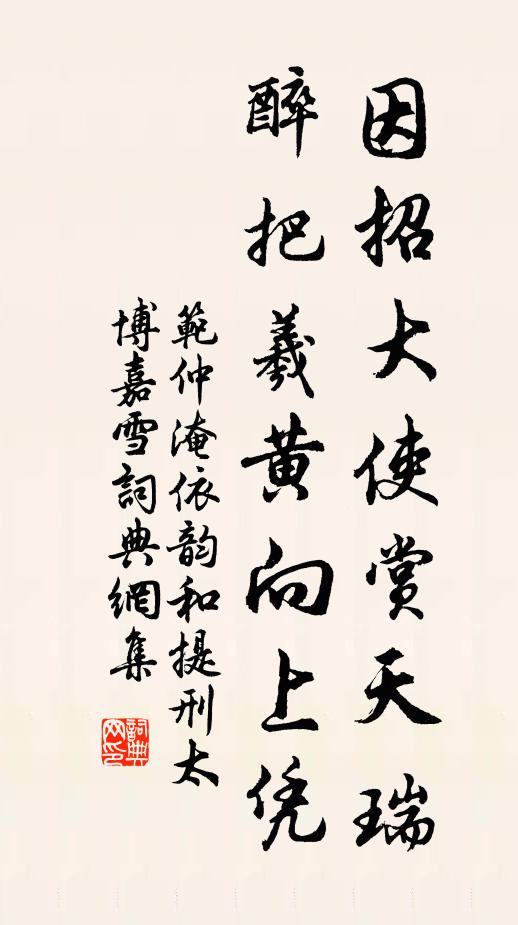 因招大使賞天瑞
醉把羲黄向上凭
範仲淹依韵和提刑太
博嘉雪詞典網集
詞典網印